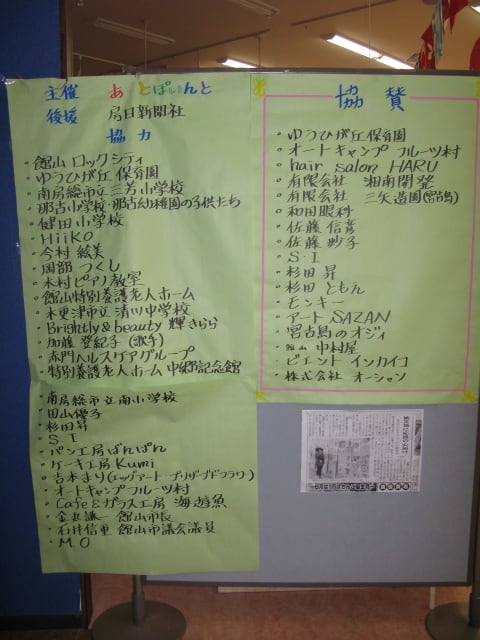 主催 あーとぽいんと
後援 房日新聞社
協力
・館山 ロックシティ
・ゆうひが丘保育園
・南房総市立三芳小学校
・那古小学校・那古幼稚園の子供たち
・健田小学校
・HiiKO
・今村 絵美
・岡部 つくし
・木村ピアノ教室
・館山特別養護老人ホーム
・木更津市立 清川中学校
・Brightly&beauty 輝きらら
・加藤 登紀子(歌手)
・赤門ヘルスケアグループ
・特別養護老人ホーム 中郷記念館
・南房総市立南小学校
・田山優子
・杉田昇
・S I
・パン工房ぱんぱん
・ケーキ工房 Kumi
・吉本まり(エッグアート プリザーブドフラワー)
・オートキャンプフルーツ村
・Cafe&ガラス工房 海遊魚
・金丸謙一 館山市長
・石井信重 館山市議会議員
・M O
協賛
・ゆうひが丘保育園
・オートキャンプ フルーツ村
・hair salon HARU
・有限会社 湘南開発
・有限会社 三矢造園(宮古島)
・和田眼科
・佐藤 信彦
・佐藤 妙子
・S I
・杉田 昇
・杉田 ともえ
・モンキー
・アート SAZAN
・宮古島のオジィ
・館山 中村屋
・ビエント インカイコ
・株式会社 オーシャン